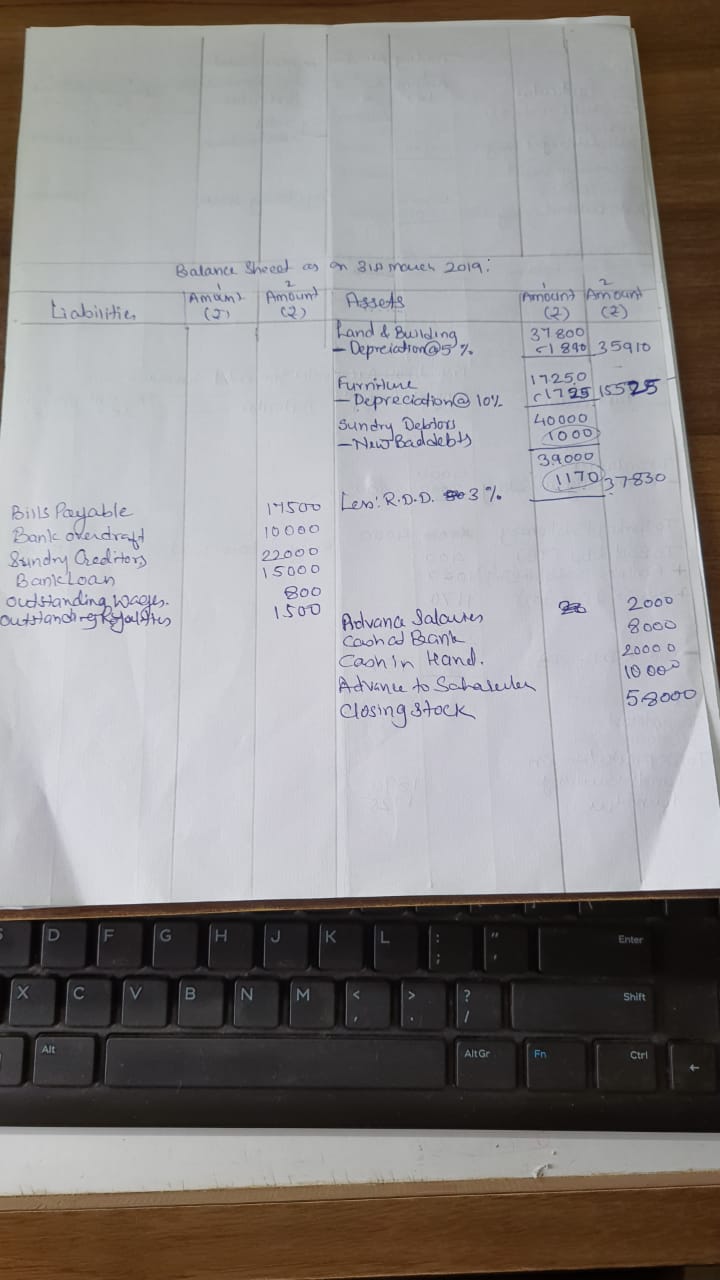 Balance Sheet as on 31st March 2019:
Liabilities
1
Amount
(₹)
2
Amount
(₹)
Assets
1
Amount
(₹)
2
Amount
(₹)
Land & Building 37800
- Depreciation@5%. <1890 35910
Furniture 17250
- Depreciation@ 10% <1725 15525
Sundry Debtors 40000
- New Baddebts 1000
39000
Less: R.D.D. 3% 1170 37830
Bills Payable 17500
Bank overdraft 10000
Sundry Creditors 22000
Bank Loan 15000
Outstanding Wages. 800
Outstanding Royalties 1500
Advance Salaries 2000
Cash at Bank 8000
Cash in Hand. 20000
Advance to 10000
Closing Stock 58000
S D F G H J K L : ; " ' Enter
X C V B N M < , > . ? / Shift
Alt Alt Gr Fn Ctrl ←